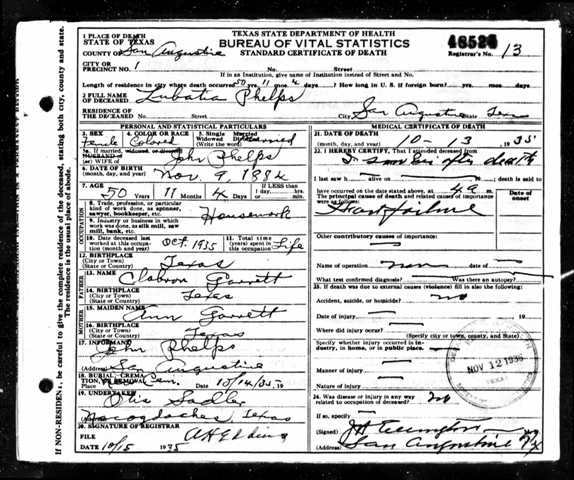 TEXAS STATE DEPARTMENT OF HEALTH
BUREAU OF VITAL STATISTICS
STANDARD CERTIFICATE OF DEATH
Registrar's No. 13
1 PLACE OF DEATH
STATE OF TEXAS
COUNTY OF San Augustine
CITY OR PRECINCT NO. 1 No. Street
If in an Institution, give name of Institution instead of Street and No.
Length of residence in city where death occurred 50 yrs 11 mos 4 days? How long in U. S. if foreign born? yrs mos days
2 FULL NAME OF DECEASED Phelps
RESIDENCE OF THE DECEASED No. Street City San Augustine Texas
PERSONAL AND STATISTICAL PARTICULARS
3. SEX Female
4. COLOR OR RACE Colored
5. Single Married Widowed Divorced (Write the word) Married
5a. If married, widowed, or divorced HUSBAND of or WIFE of John Phelps
6. DATE OF BIRTH (month, day, and year) Nov 9, 1884
7. AGE 50 Years 11 Months 4 Days If LESS than 1 day
OCCUPATION
8. Trade, profession, or particular kind of work done, as spinner, sawyer, bookkeeper, etc. Housework
9. Industry or business in which work was done, as silk mill, saw mill, bank, etc.
10. Date deceased last worked at this occupation (month and year) Oct 1935
11. Total time (years) spent in this occupation Life
12. BIRTHPLACE (City or Town) (State or Country) Texas
FATHER
13. NAME Garrett
14. BIRTHPLACE (City or Town) (State or Country) Texas
MOTHER
15. MAIDEN NAME Ann Garrett
16. BIRTHPLACE (City or Town) (State or Country) Texas
17. INFORMANT John Phelps
(Address) San Augustine
18. BURIAL, CREMATION, OR REMOVAL
Place Cem. Date 10/14/35, 19
19. UNDERTAKER Otis Sadler
(Address) Nacogdoches, Texas
20. SIGNATURE OF REGISTRAR
FILE DATE 10/15 1935
MEDICAL CERTIFICATE OF DEATH
21. DATE OF DEATH (month, day, and year) 10-13 1935
22. I HEREBY CERTIFY, That I attended deceased from
after death
I last saw h alive on 19 , death is said to
have occurred on the date stated above, at 4 a m.
The principal cause of death and related causes of importance were as follows:
Date of onset
Heart failure
Other contributory causes of importance:
Name of operation none date of
What test confirmed diagnosis? Was there an autopsy?
23. If death was due to external causes (violence) fill in also the following:
Accident, suicide, or homicide? no
Date of injury 19
Where did injury occur?
(Specify city or town, county, and State)
Specify whether injury occurred in industry, in home, or in public place.
Manner of injury
Nature of injury
24. Was disease or injury in any way related to occupation of deceased? no
If so, specify
(Signed)
(Address) San Augustine Tex
NOV 12 1935
TEXAS
IF NON-RESIDENT, be careful to give the complete residence of the deceased, stating both city, county and state.
The residence is the usual place of abode.